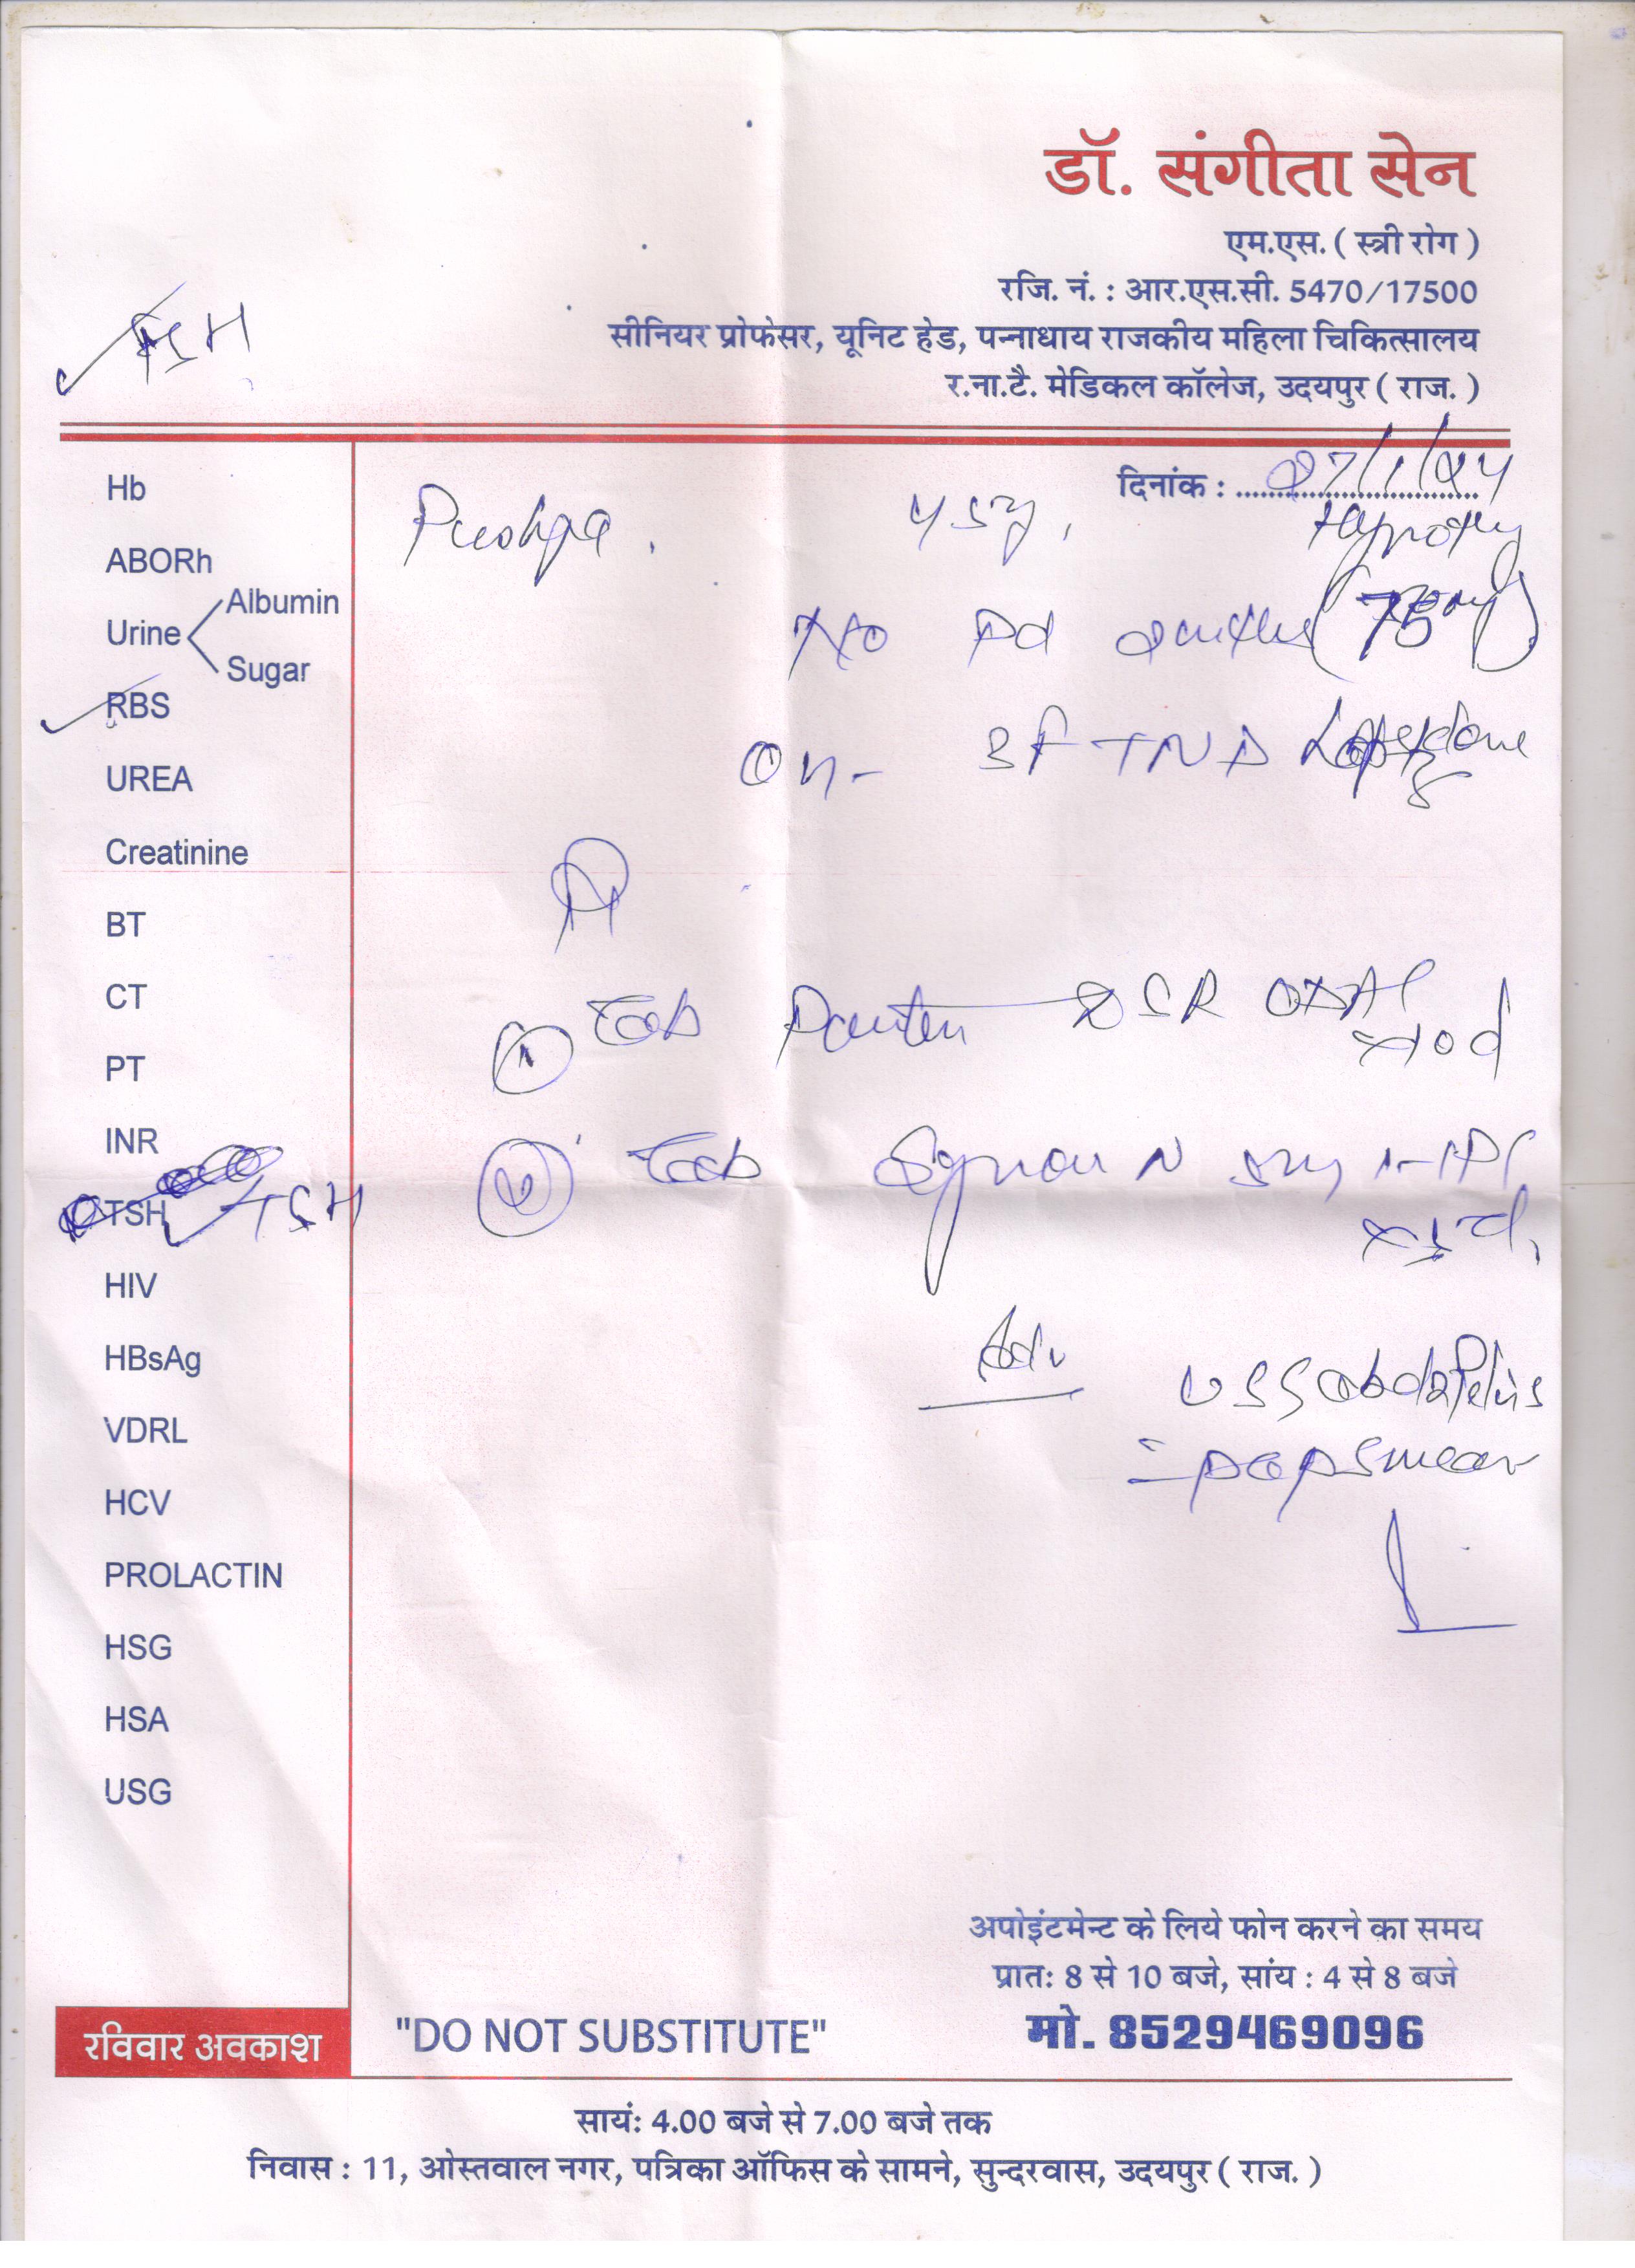 डॉ. संगीता सेन
एम.एस. ( स्त्री रोग )
रजि. नं. : आर.एस.सी. 5470/17500
सीनियर प्रोफेसर, यूनिट हेड, पन्नाधाय राजकीय महिला चिकित्सालय
र.ना.टै. मेडिकल कॉलेज, उदयपुर ( राज. )
FSH
दिनांक : 27/1/24
Pushpa 45y,
Hb
ABORh
Urine Albumin
Sugar
RBS
UREA
Creatinine
BT
CT
PT
INR
TSH TSH
HIV
HBsAg
VDRL
HCV
PROLACTIN
HSG
HSA
USG
No Pd
O/H- 3FTND
1 Tab DSR
2 Tab N 5mg
Adv
USG abd & Pelvis
= pap smear
अपोइंटमेन्ट के लिये फोन करने का समय
प्रातः 8 से 10 बजे, सांय : 4 से 8 बजे
रविवार अवकाश "DO NOT SUBSTITUTE" मो. 8529469096
सायं: 4.00 बजे से 7.00 बजे तक
निवास : 11, ओस्तवाल नगर, पत्रिका ऑफिस के सामने, सुन्दरवास, उदयपुर ( राज. )